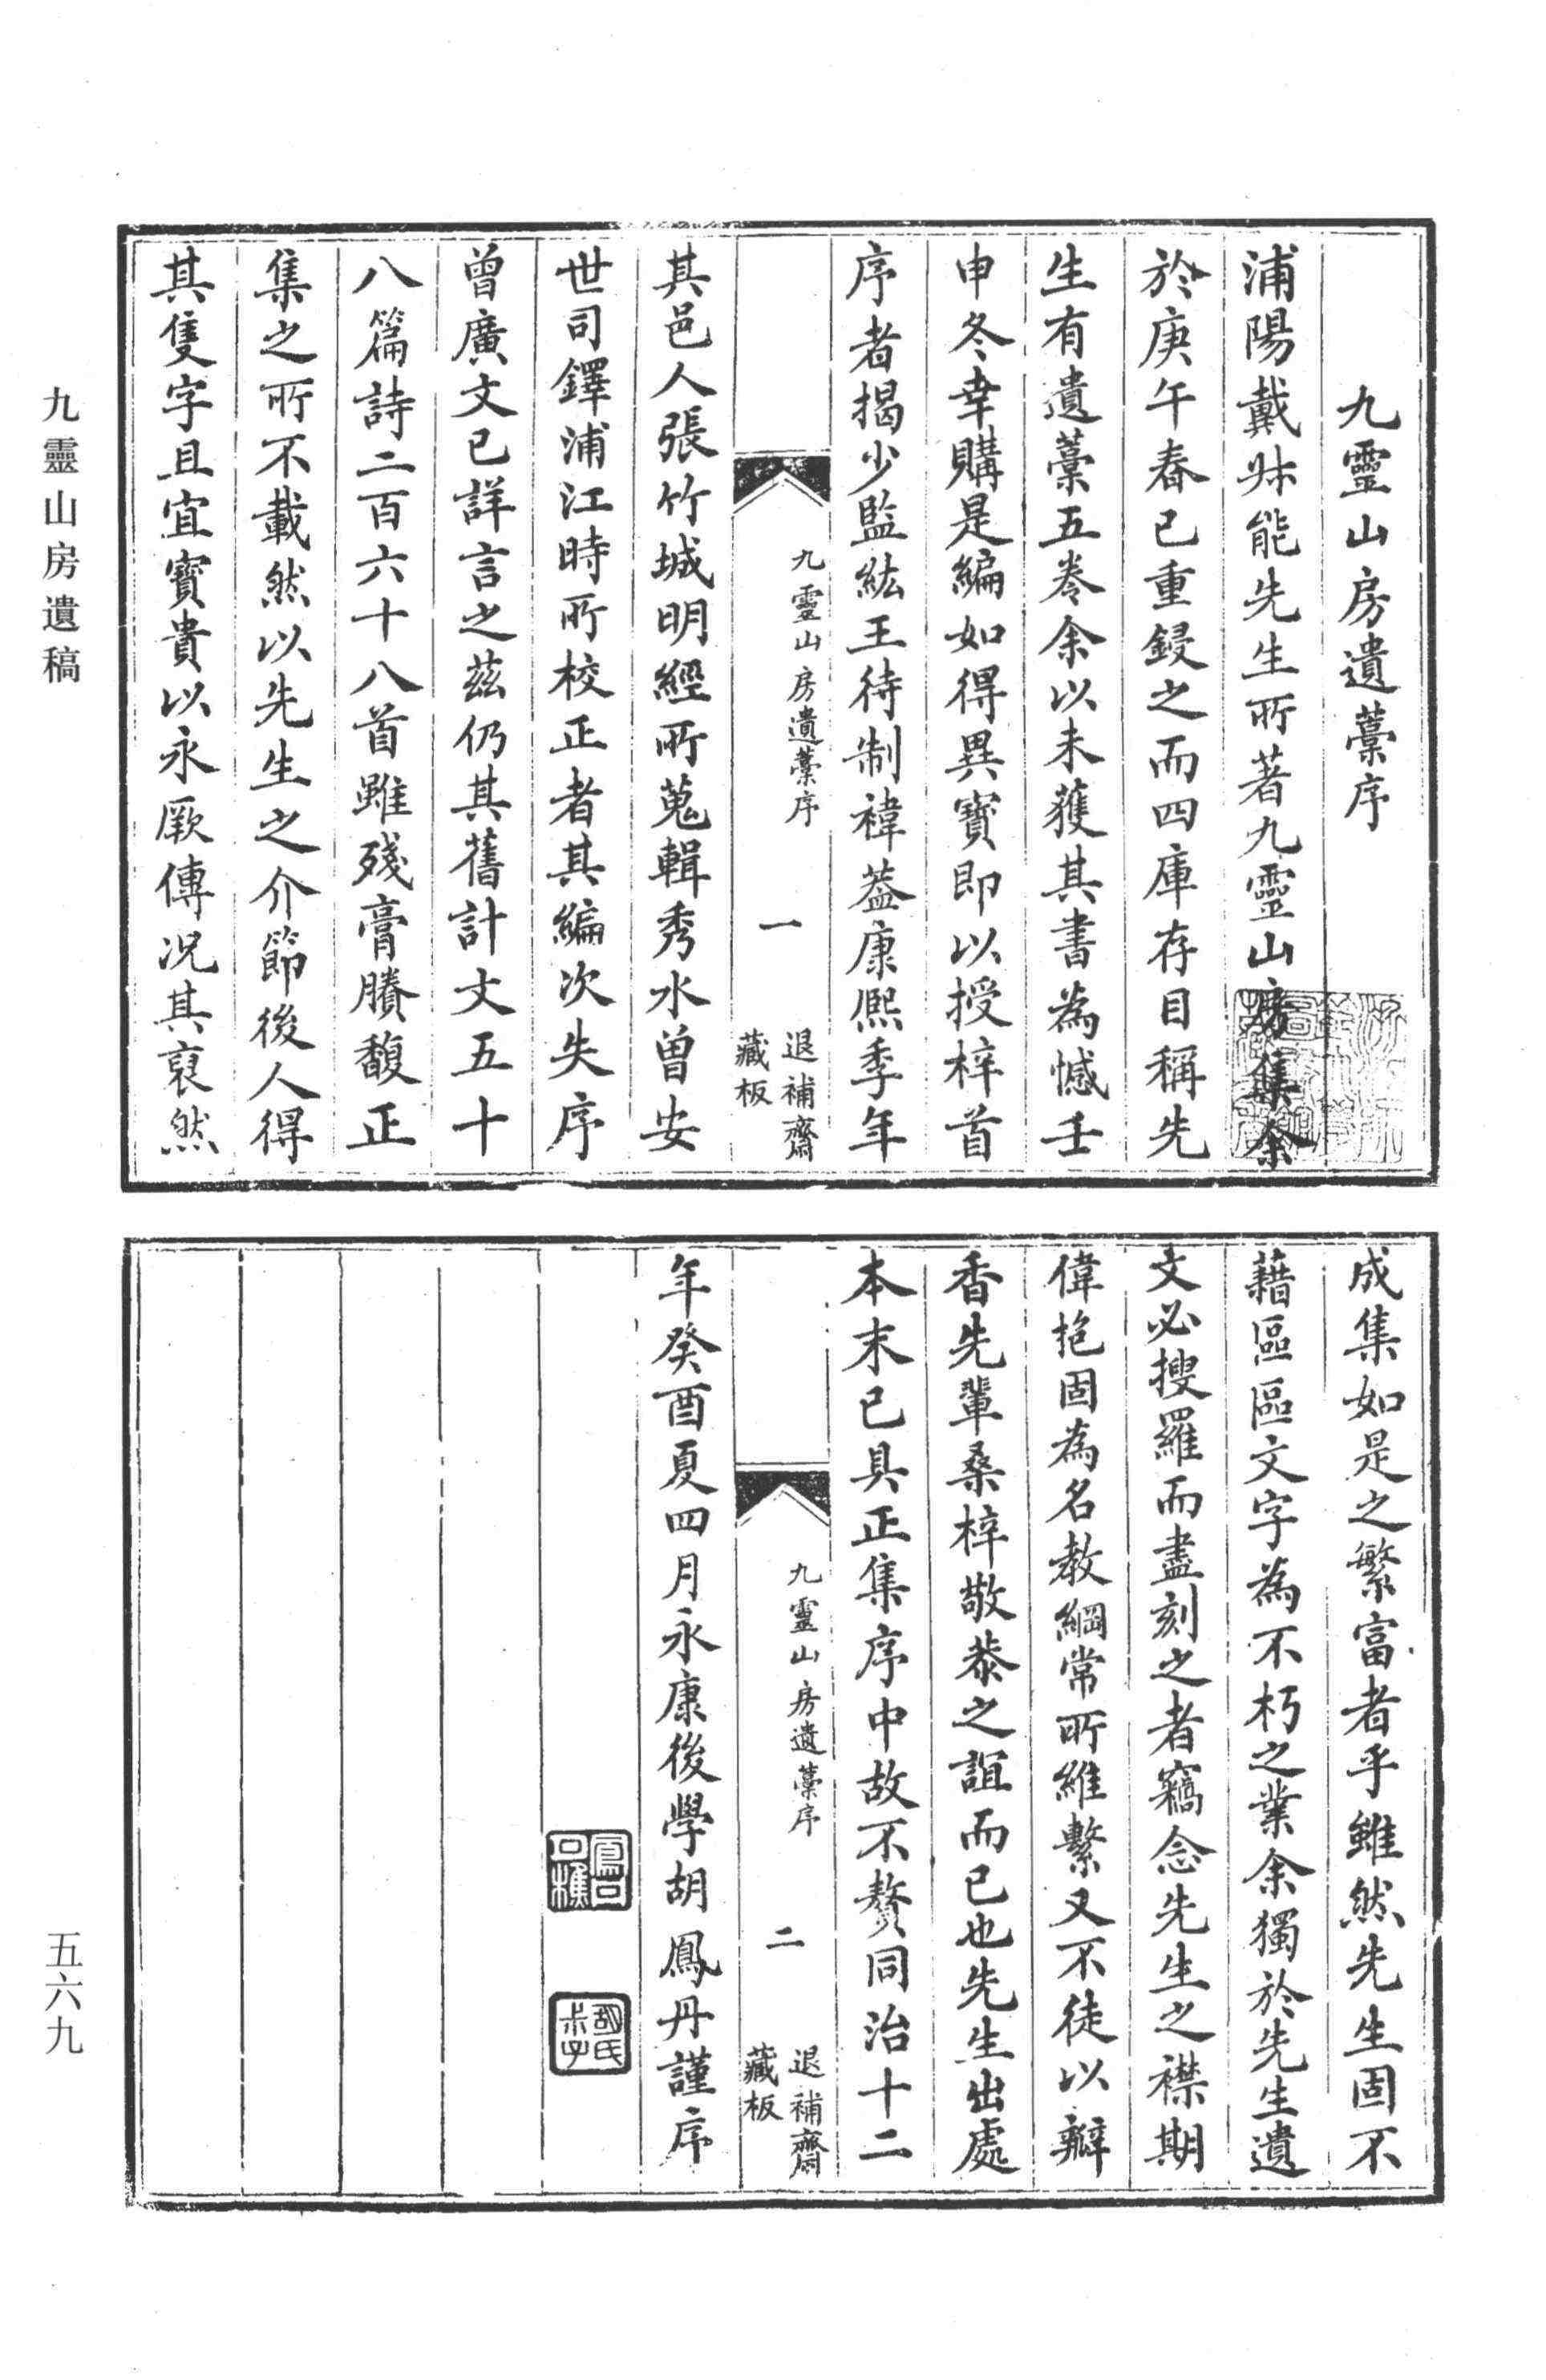 九靈山房遺藁序
浦陽戴叔能先生所著九靈山房集余
於庚午春已重鋟之而四庫存目稱先
生有遺藁五卷余以未獲其書為憾壬
申冬幸購是編如得異寶即以授梓首
序者揭少監紘王待制禕葢康熙季年
九靈山房遺藁序
一
退補齋
藏板
其邑人張竹城明經所蒐輯秀水曾安
世司鐸浦江時所校正者其編次失序
曾廣文已詳言之茲仍其舊計文五十
八篇詩二百六十八首雖殘膏賸馥正
集之所不載然以先生之介節後人得
其隻字且宜寶貴以永厥傳況其裒然
成集如是之繁富者乎雖然先生固不
藉區區文字為不朽之業余獨於先生遺
文必搜羅而盡刻之者竊念先生之襟期
偉抱固為名教綱常所維繫又不徒以瓣
香先輩桑梓敬恭之誼而已也先生出處
本末已具正集序中故不贅同治十二
九靈山房遺藁序
二
退補齋
藏板
年癸酉夏四月永康後學胡鳳丹謹序
九靈山房遺稿
五六九